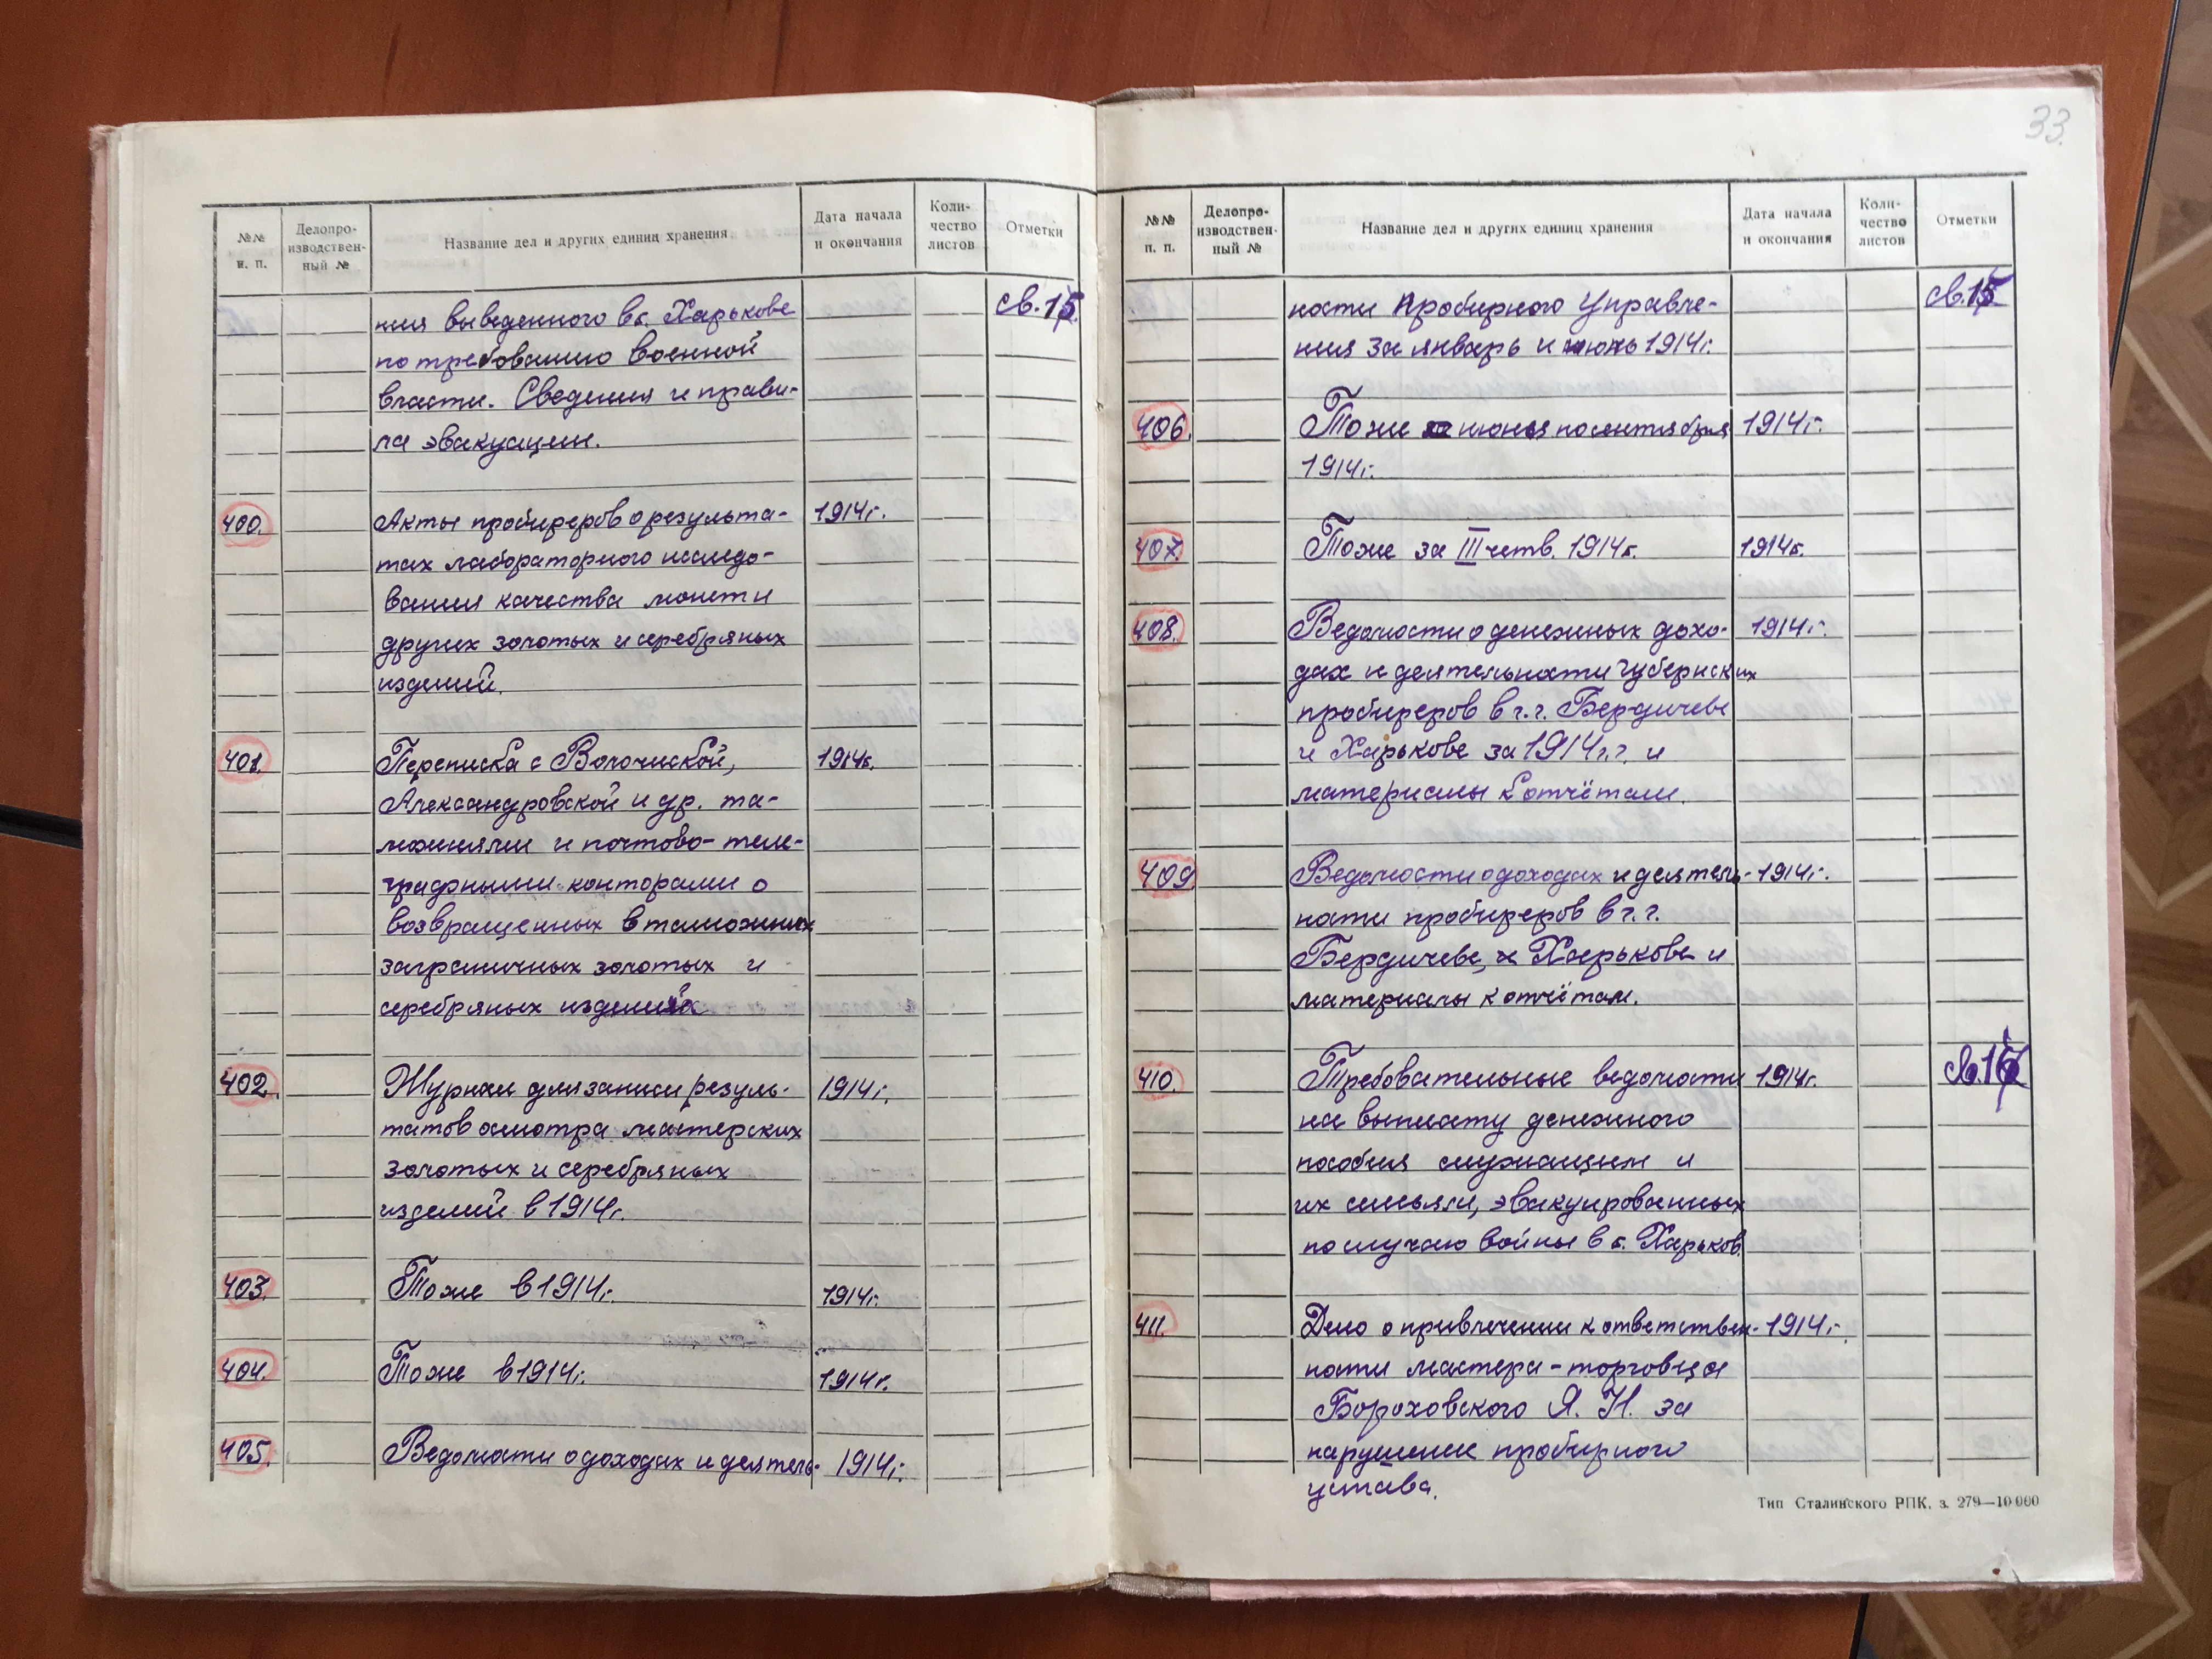 №№ п. п.
Делопро-
изводствен-
ный №
Название дел и других единиц хранения
Дата начала
и окончания
Коли-
чество
листов
Отметки
ния выведенного в г. Харькове
св. 15
по требованию военной
власти. Сведения и прави-
ла эвакуации.
400. Акты пробиреров о результа- 1914г.
тах лабораторного исследо-
вания качества монет и
других золотых и серебряных
изделий.
401. Переписка с Волочиской, 1914г.
Александровской и др. та-
можнями и почтово-теле-
графными конторами о
возвращенных в таможнях
заграничных золотых и
серебряных изделиях
402. Журнал для записи резуль- 1914г.
татов осмотра мастерских
золотых и серебряных
изделий в 1914г.
403. Тоже в 1914г. 1914г.
404. Тоже в 1914г. 1914г.
405. Ведомости о доходах и деятель- 1914г.
33.
№№
п. п.
Делопро-
изводствен-
ный №
Название дел и других единиц хранения
Дата начала
и окончания
Коли-
чество
листов
Отметки
ности Пробирного Управле-
св. 15
ния за январь и июнь 1914г.
406. Тоже июня по сентября 1914г.
1914г.
407. Тоже за III четв. 1914г. 1914г.
408. Ведомости о денежных дохо- 1914г.
дах и деятельности губернских
пробиреров в г.г. Бердичеве
и Харькове за 1914г.г. и
материалы к отчётам.
409 Ведомости о доходах и деятель- 1914г.
ности пробиреров в г.г.
Бердичеве, и Харькове и
материалы к отчётам.
410. Требовательные ведомости 1914г.
на выплату денежного
пособия служащим и
их семьям, эвакуированных
по случаю войны в г. Харьков.
411. Дело о привлечении к ответствен- 1914г.
ности мастера-торговца
Бороховского Я. Н. за
нарушение пробирного
устава.
Тип Сталинского РПК. з. 279—10.000